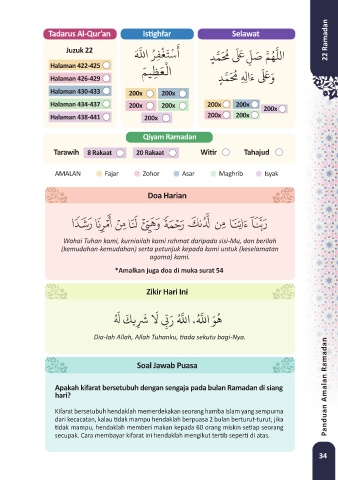 Tadarus Al-Qur'an
Juzuk 22
Halaman 422-425
Halaman 426-429
Halaman 430-433
Halaman 434-437
Halaman 438-441
Istighfar
أَسْتَغْفِرُ اللَّهَ
الْعَظِيمَ
200x 200x
200x 200x
200x
Selawat
اللَّهُمَّ صَلِّ عَلَى مُحَمَّدٍ
وَعَلَى ءَالِهِ مُحَمَّدٍ
200x 200x
200x
200x 200x
Qiyam Ramadan
Tarawih 8 Rakaat 20 Rakaat Witir Tahajud
AMALAN Fajar Zohor Asar Maghrib Isyak
Doa Harian
رَبَّنَآ ءَاتِنَا مِن لَّدُنكَ رَحْمَةً وَهَيِّئْ لَنَا مِنْ أَمْرِنَا رَشَدًا
Wahai Tuhan kami, kurniailah kami rahmat daripada sisi-Mu, dan berilah
(kemudahan-kemudahan) serta petunjuk kepada kami untuk (keselamatan
agama) kami.
*Amalkan juga doa di muka surat 54
Zikir Hari Ini
هُوَ اللَّهُ، اللَّهُ رَبِّي لَا شَرِيكَ لَهُ
Dia-lah Allah, Allah Tuhanku, tiada sekutu bagi-Nya.
Soal Jawab Puasa
Apakah kifarat bersetubuh dengan sengaja pada bulan Ramadan di siang
hari?
Kifarat bersetubuh hendaklah memerdekakan seorang hamba Islam yang sempurna
dari kecacatan, kalau tidak mampu hendaklah berpuasa 2 bulan berturut-turut, jika
tidak mampu, hendaklah memberi makan kepada 60 orang miskin setiap seorang
secupak. Cara membayar kifarat ini hendaklah mengikut tertib seperti di atas.
22 Ramadan
Panduan Amalan Ramadan
34